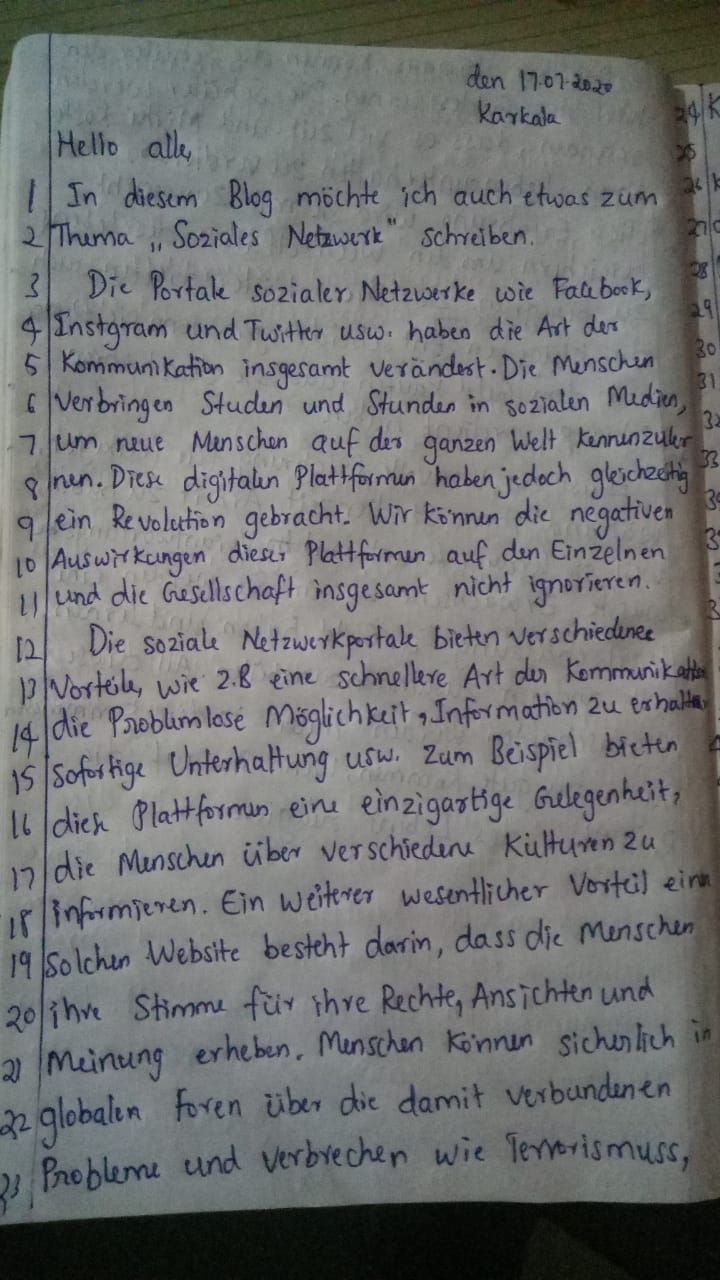 den 17.07.2020
Karkala
Hello alle,
1 In diesem Blog möchte ich auch etwas zum
2 Thema „Soziales Netzwerk" schreiben.
3 Die Portale sozialer Netzwerke wie Facebook,
4 Instgram und Twitter usw. haben die Art der
5 Kommunikation insgesamt verändert. Die Menschen
6 Verbringen Studen und Stunden in sozialen Medien,
7 um neue Menschen auf der ganzen Welt kennenzuler
8 nen. Diese digitalen Plattformen haben jedoch gleichzeitig
9 ein Revolution gebracht. Wir können die negativen
10 Auswirkungen dieser Plattformen auf den Einzelnen
11 und die Gesellschaft insgesamt nicht ignorieren.
12 Die soziale Netzwerkportale bieten verschiedene
13 Vorteile, wie z.B eine schnellere Art der Kommunikation
14 die Problemlose Möglichkeit, Information zu erhalten,
15 Sofortige Unterhaltung usw. Zum Beispiel bieten
16 diese Plattformen eine einzigartige Gelegenheit,
17 die Menschen über verschiedene Kulturen zu
18 informieren. Ein weiterer wesentlicher Vorteil einer
19 Solchen Website besteht darin, dass die Menschen
20 ihre Stimme für ihre Rechte, Ansichten und
21 Meinung erheben. Menschen können sicherlich in
22 globalen Foren über die damit verbundenen
23 Probleme und verbrechen wie Terrorismuss,
24 K
25
26 K
27
28
29
30
31
32
33